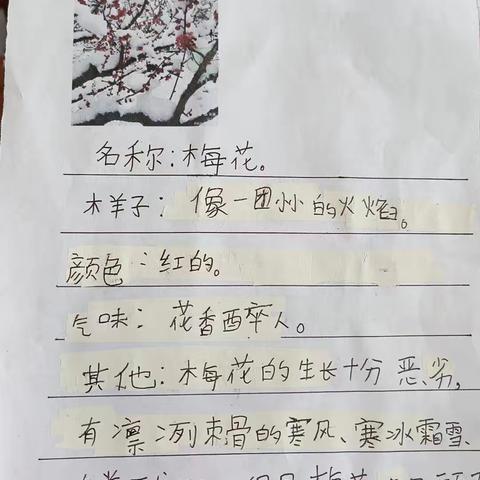 名称：梅花。
样子：像一团小小的火焰。
颜色：红的。
气味：花香醉人。
其他：梅花的生长十分恶劣，
有凛冽刺骨的寒风、寒冰霜雪、
梅花